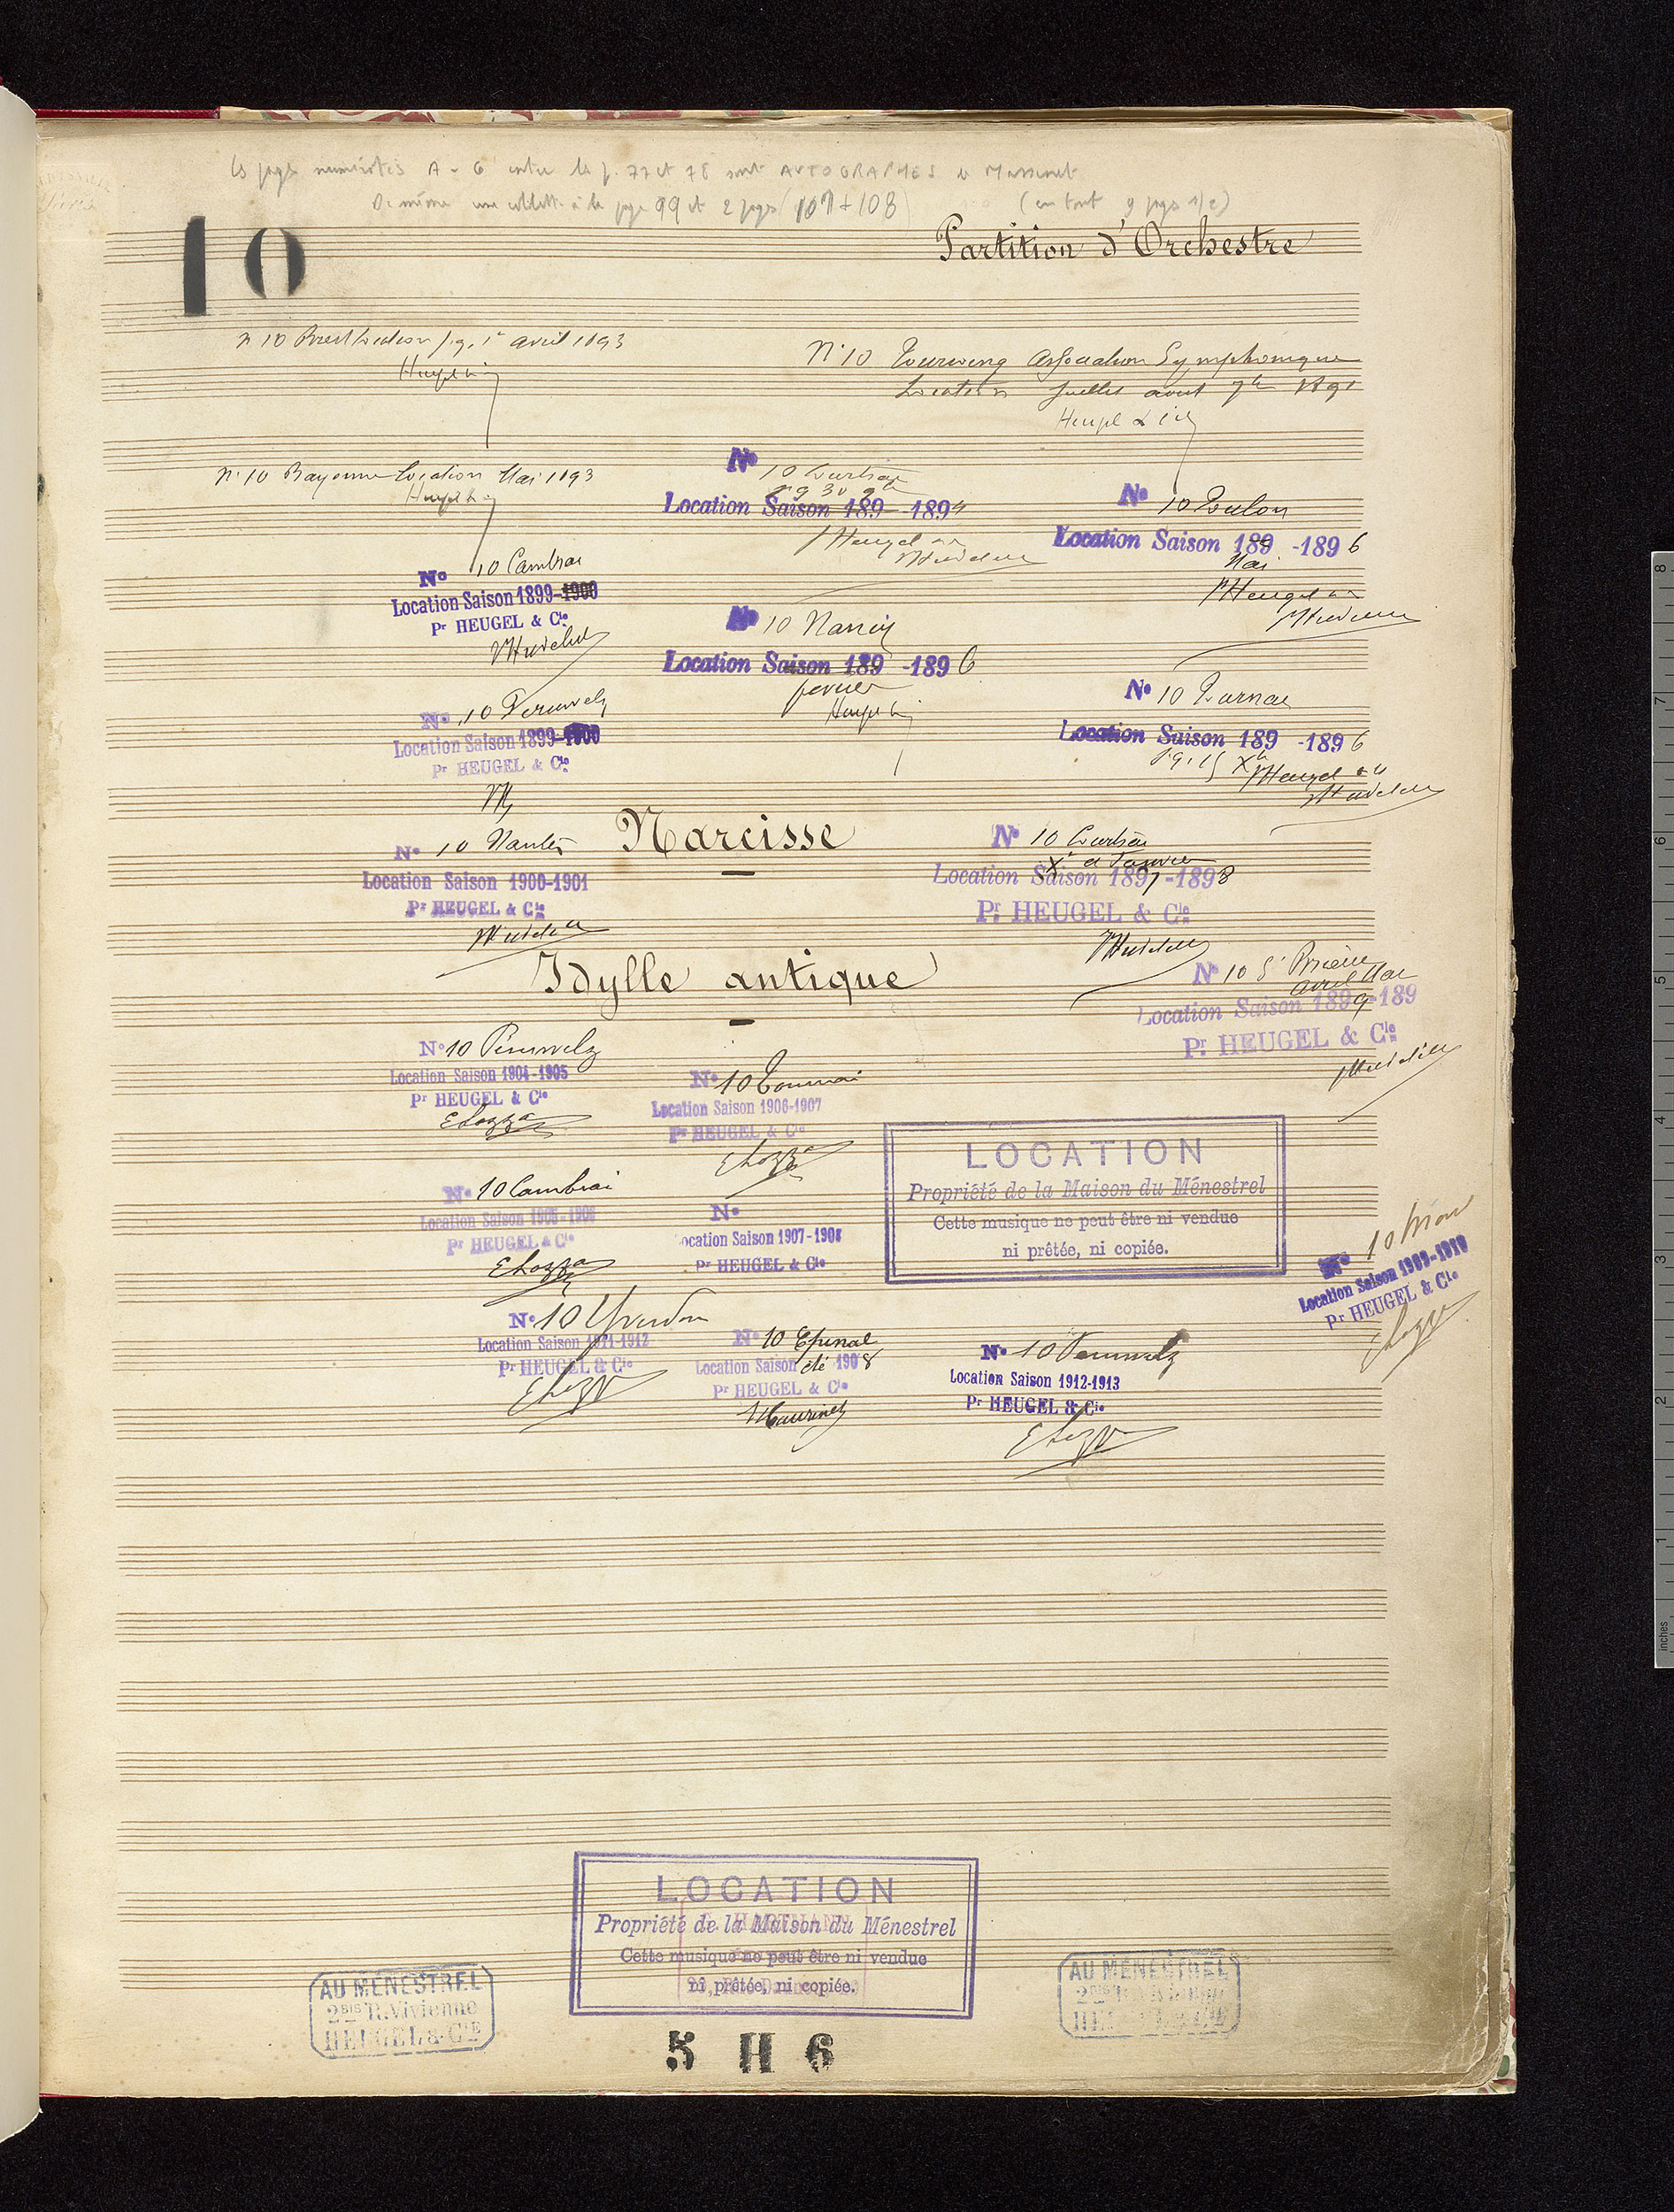 Les pages numérotées A - G entre la p. 77 et 78 sont AUTOGRAPHES de Massenet
De même une collette à la page 99 et 2 pages (107 + 108) (en tout 9 pages 1/2)
10
Partition d'Orchestre
N° 10 Brest Location 1er avril 1893
Heugel
N° 10 Tourcoing Association Symphonique
Location Juillet aout 7bre 1891
Heugel & Cie
N° 10 Bayonne Location Mai 1893
Heugel
N° 10 Courtrai
Location Saison 189 -1894
Heugel
N° 10 Toulon
Location Saison 189 -1896
Mai
Heugel
N° 10 Cambrai
Location Saison 1899-1900
Pr HEUGEL & Cie
N° 10 Nancy
Location Saison 189 -1896
fevrier
Heugel
N° 10 Peruwelz
Location Saison 1899-1900
Pr HEUGEL & Cie
N° 10 Tournai
Location Saison 189 -1896
Heugel
Narcisse
N° 10 Nantes
Location Saison 1900-1901
Pr HEUGEL & Cie
N° 10 Courtrai
Xe et Janvier
Location Saison 1897-1898
Pr HEUGEL & Cie
Idylle antique
N° 10 St Brieuc
avril Mai
Location Saison 1899-189
Pr HEUGEL & Cie
N° 10 Péruwelz
Location Saison 1904-1905
Pr HEUGEL & Cie
N° 10 Tournai
Location Saison 1906-1907
Pr HEUGEL & Cie
LOCATION
Propriété de la Maison du Ménestrel
Cette musique ne peut être ni vendue
ni prêtée, ni copiée.
N° 10 Cambrai
Location Saison 1905-1906
Pr HEUGEL & Cie
N°
ocation Saison 1907-1908
Pr HEUGEL & Cie
N° 10
Location Saison 1909-1910
Pr HEUGEL & Cie
N° 10 Yverdon
Location Saison 1911-1912
Pr HEUGEL & Cie
N° 10 Epinal
Location Saison été 1908
Pr HEUGEL & Cie
N° 10 Peruwelz
Location Saison 1912-1913
Pr HEUGEL & Cie
LOCATION
Propriété de la Maison du Ménestrel
Cette musique ne peut être ni vendue
ni prêtée, ni copiée.
AU MÉNESTREL
2bis R. Vivienne
HEUGEL & Cie
AU MÉNESTREL
2bis R. Vivienne
HEUGEL & Cie
5 H 6
inches 1 2 3 4 5 6 7 8